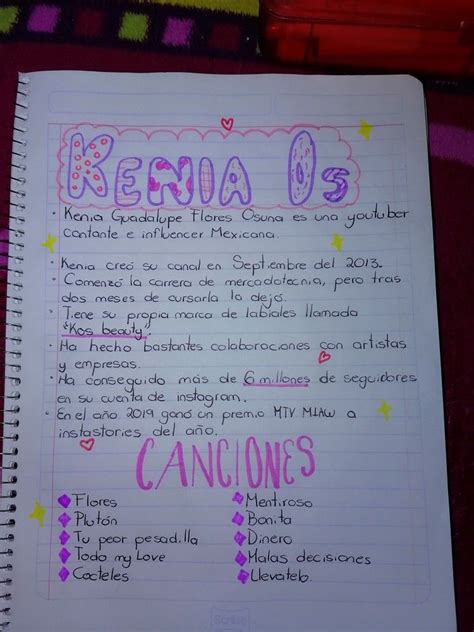 KENIA Os
· Kenia Guadalupe Flores Osuna es una youtuber
cantante e influencer Mexicana.
· Kenia creó su canal en Septiembre del 2013.
· Comenzó la carrera de mercadotecnia, pero tras
dos meses de cursarla la dejó.
· Tiene su propia marca de labiales llamada
"Kos beauty".
· Ha hecho bastantes colaboraciones con artistas
y empresas.
· Ha conseguido más de 6 millones de seguidores
en su cuenta de instagram.
· En el año 2019 ganó un premio MTV MIAW a
instastories del año.
CANCIONES
Flores
Plutón
Tu peor pesadilla
Todo my Love
Cocteles
Mentiroso
Bonita
Dinero
Malas decisiones
Llevatelo.
Scribe